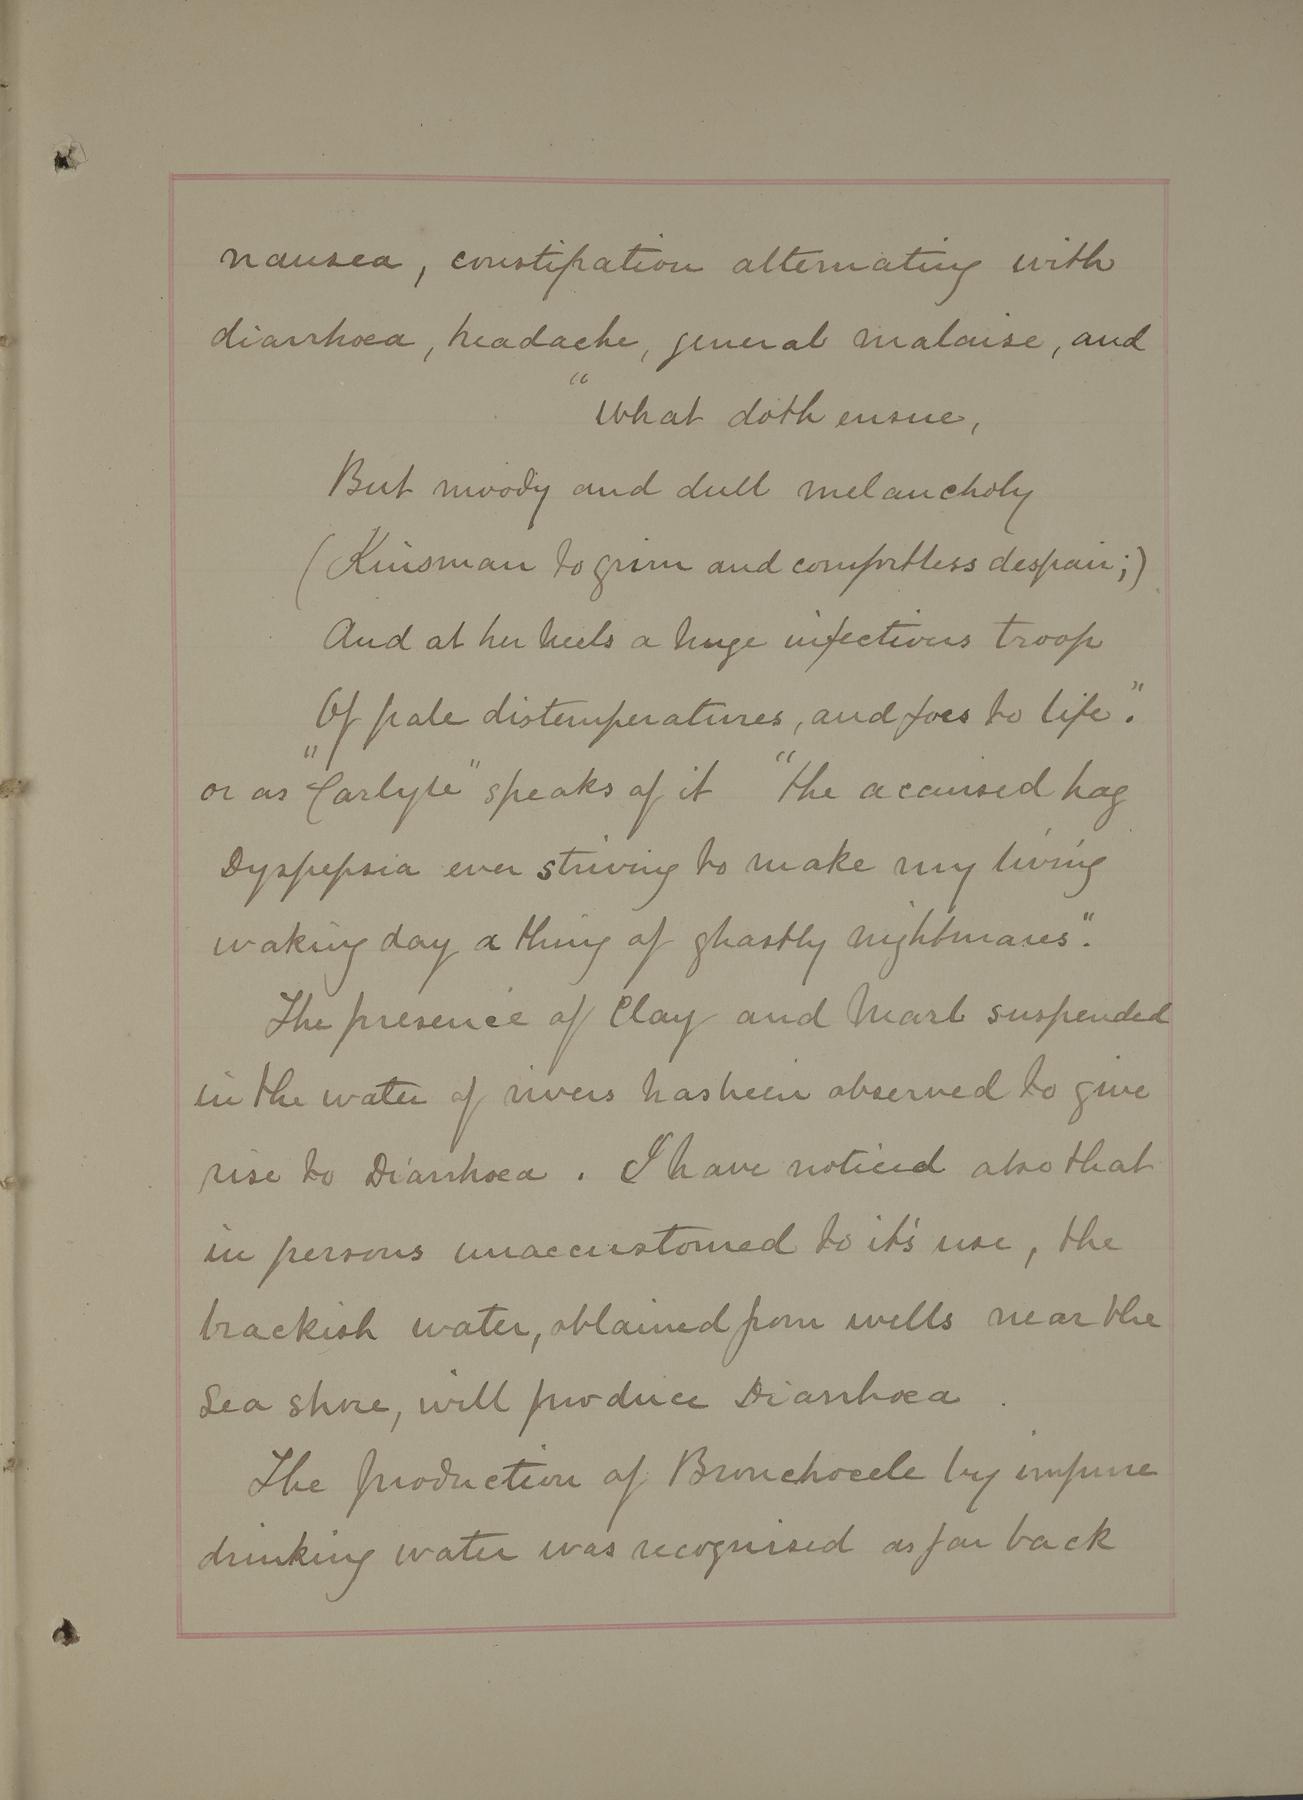 nausea, constipation alternating with
diarrhoea, headache, general malaise, and
"What doth ensue,
But moody and dull melancholy
(Kinsman to grim and comfortless despair;)
And at her heels a huge infectious troop
Of pale distemperatures, and foes to life".
or as "Carlyle" speaks of it "the accursed hag
Dyspepsia ever striving to make my living
waking day a thing of ghastly nightmares".
The presence of Clay and Marl suspended
in the water of rivers has been observed to give
rise to Diarrhoea. I have noticed also that
in persons unaccustomed to it's use, the
brackish water, obtained from wells near the
Sea shore, will produce Diarrhoea.
The production of Bronchocele by impure
drinking water was recognised as far back